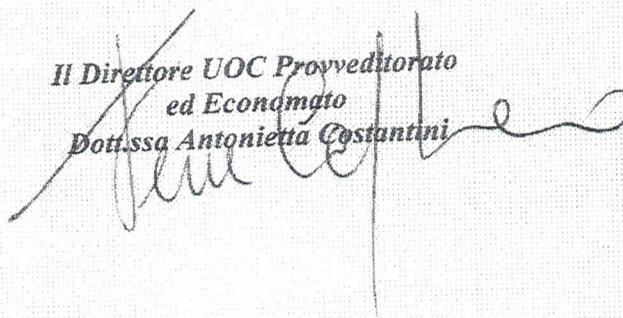 Il Direttore UOC Provveditorato
ed Economato
Dott.ssa Antonietta Costantini